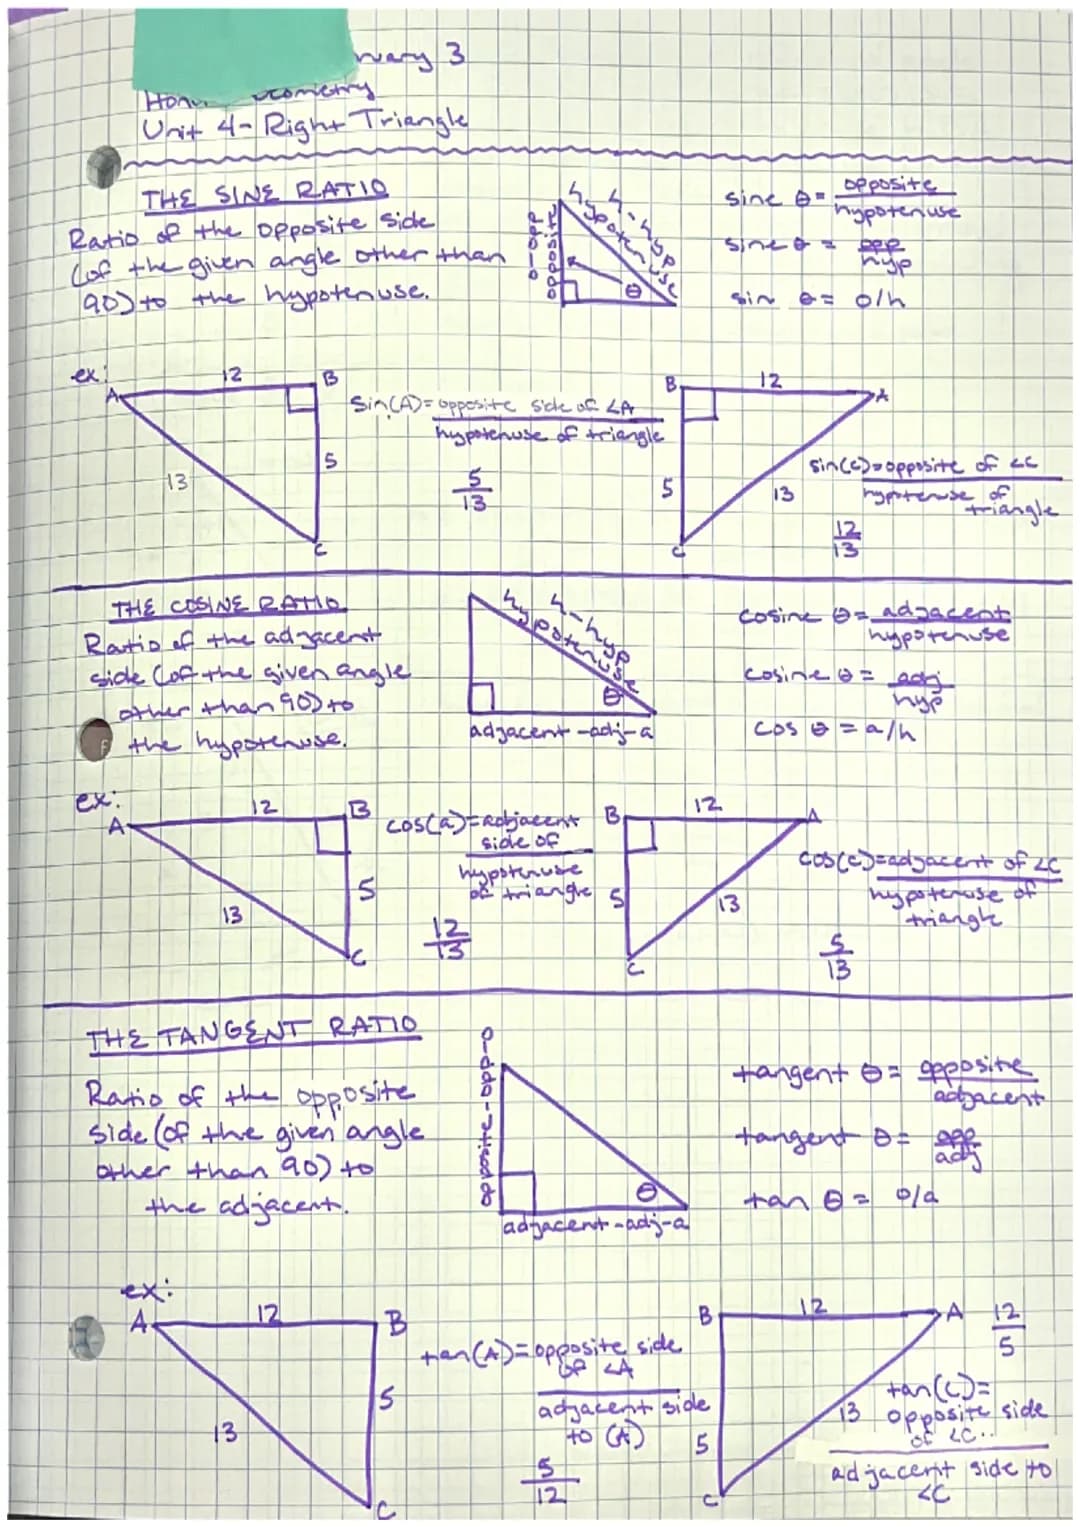 ruary 3
Geometry
Unit 4- Right Triangle
THE SINE RATIO
Ratio of the opposite side
(of the given angle other than
90) to the hypotenuse.
opposite-opp-o
hypotenuse
h-hyp
θ
sine θ = opposite
hypotenuse
sine θ = opp
hyp
sin θ = o/h
ex:
A
12
B
5
13
C
Sin(A)=opposite side of ∠A
hypotenuse of triangle
5
13
B
12
A
5
13
C
sin(C)=opposite of ∠C
hypotenuse of
triangle
12
13
THE COSINE RATIO
Ratio of the adjacent
side (of the given angle
other than 90) to
the hypotenuse.
hypotenuse
h-hyp
θ
adjacent-adj-a
cosine θ = adjacent
hypotenuse
cosine θ = adj
hyp
cos θ = a/h
ex:
A
12
B
5
13
C
cos(a)=adjacent
side of
hypotenuse
of triangle
12
13
B
12
A
5
13
C
cos(c)=adjacent of ∠C
hypotenuse of
triangle
5
13
THE TANGENT RATIO
Ratio of the opposite
side (of the given angle
other than 90) to
the adjacent.
opposite-opp-o
θ
adjacent-adj-a
tangent θ = opposite
adjacent
tangent θ = opp
adj
tan θ = o/a
ex:
A
12
B
5
13
C
tan(A)=opposite side
of ∠A
adjacent side
to (A)
5
12
B
12
A
5
13
C
12
5
tan(C)=
opposite side
of ∠C..
adjacent side to
∠C